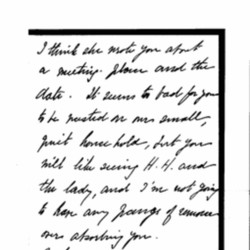 I think she wrote you about
a meeting place and the
date. It seems to bad for you
to be nested in our small,
quiet household, but you
will like seeing H. H. and
the lady, and I'm not going
to have any pangs of remorse
over absorbing you.